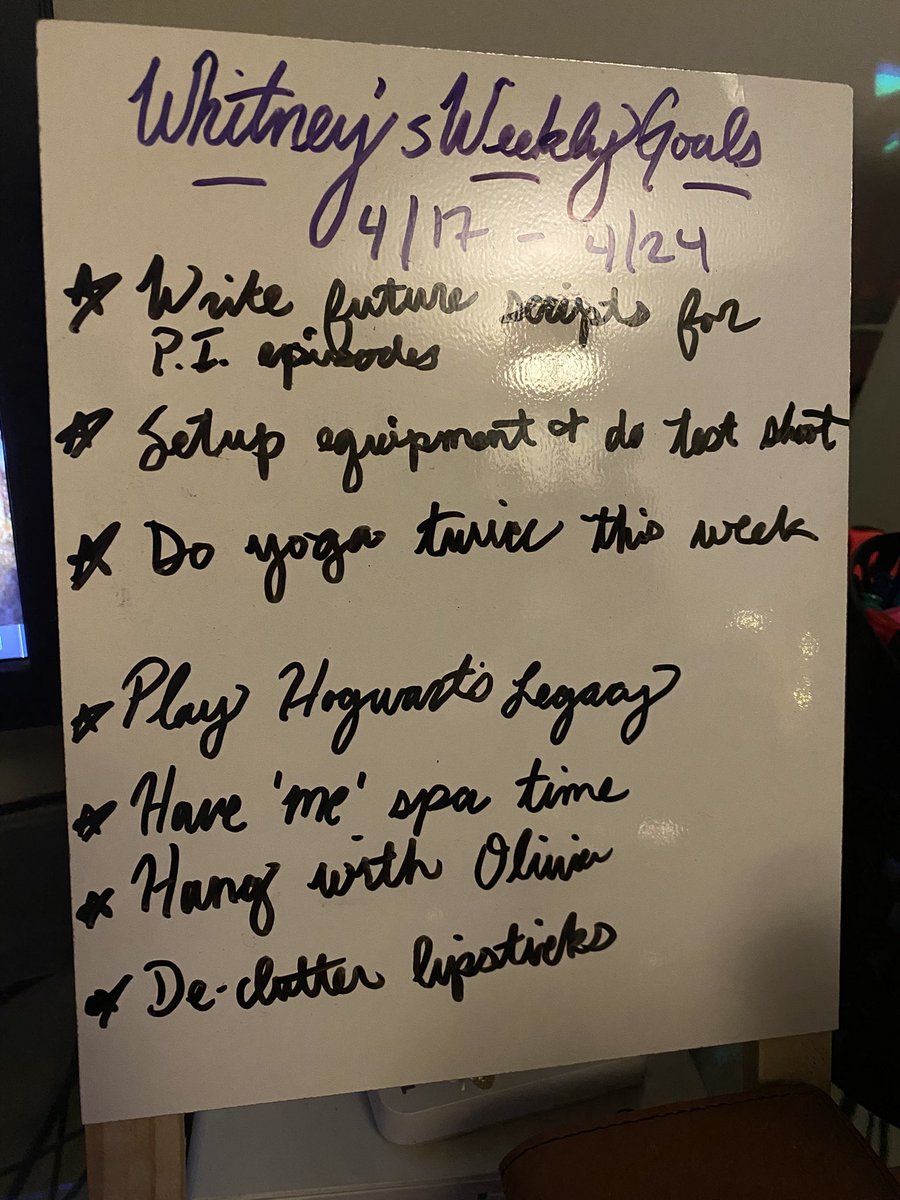 Whitney's Weekly Goals
4/17 - 4/24
Write future scripts for
P.I. episodes
Setup equipment & do test shoot
Do yoga twice this week
Play Hogwarts Legacy
Have 'me' spa time
Hang with Olivia
De-clutter lipsticks